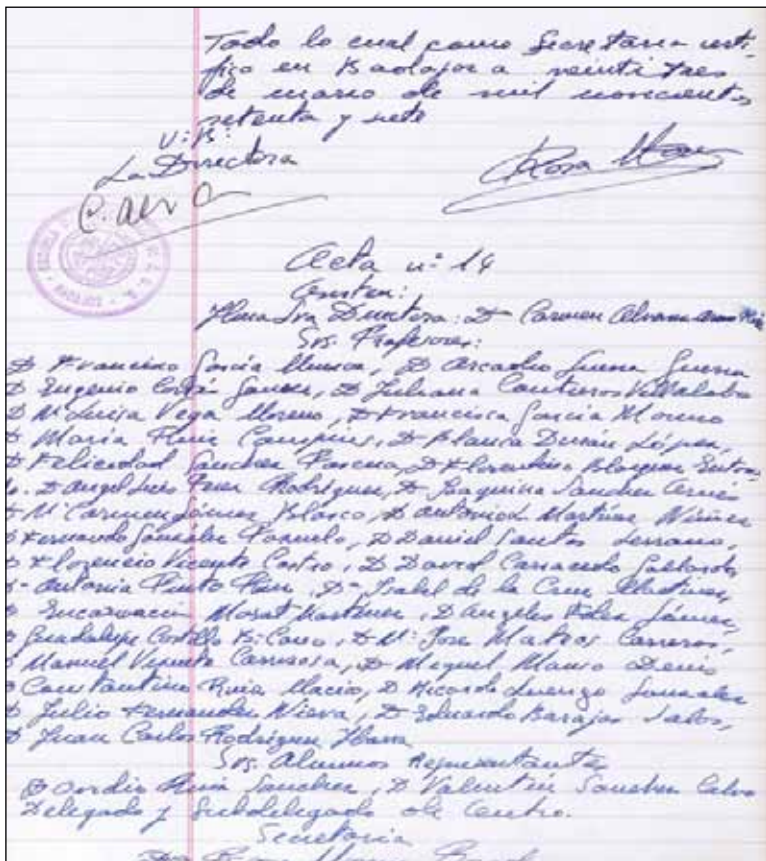 Todo lo cual como Secretaria certi-
fico en Badajoz a veintitres
de marzo de mil novecientos
setenta y siete
V: B:
La Directora
Rosa
BADAJOZ
Acta nº 14
Asisten:
Ilma Sra Directora: Dª Carmen
Srs. Profesores:
D Francisco García, D Arcadio Guerra Guerra
D Eugenio Gomez, D Juliana Contreros Villalobo
D Mª Luisa Vega Moreno, D Francisca García Moreno
D María Ruiz, D Blanca Durán López,
D Felicidad Sanchez, D Florentino Blazquez Enton-
D Angel Luis Perez Rodriguez, D Joaquina Sanchez
D Mª Carmen Gómez Blasco, D Antonio L Martínez Núñez
D Fernando González, D Daniel Santos Serrano,
D Florencio Vicente Castro, D David Carrasco Gallardo
Dª Antonia Pinto, Dª Isabel de la Cruz Martinez,
D Encarnación Martinez, D Angeles Gómez,
D Guadalupe Castillo, D Mª Jose Matros Carreros,
D Manuel Vicente Carrasosa, D Miguel Manso Denis
D Constantino Ruiz Macio, D Ricardo Luengo Gonzalez
D Julio Fernandez Nieva, D Eduardo Barajas Salas,
D Juan Carlos Rodriguez Ibarra
Srs. Alumnos Representantes
Ruiz Sanchez, D Valentín Sanchez Calvo
Delegado y Subdelegado de Centro.
Secretaria
Dª Rosa